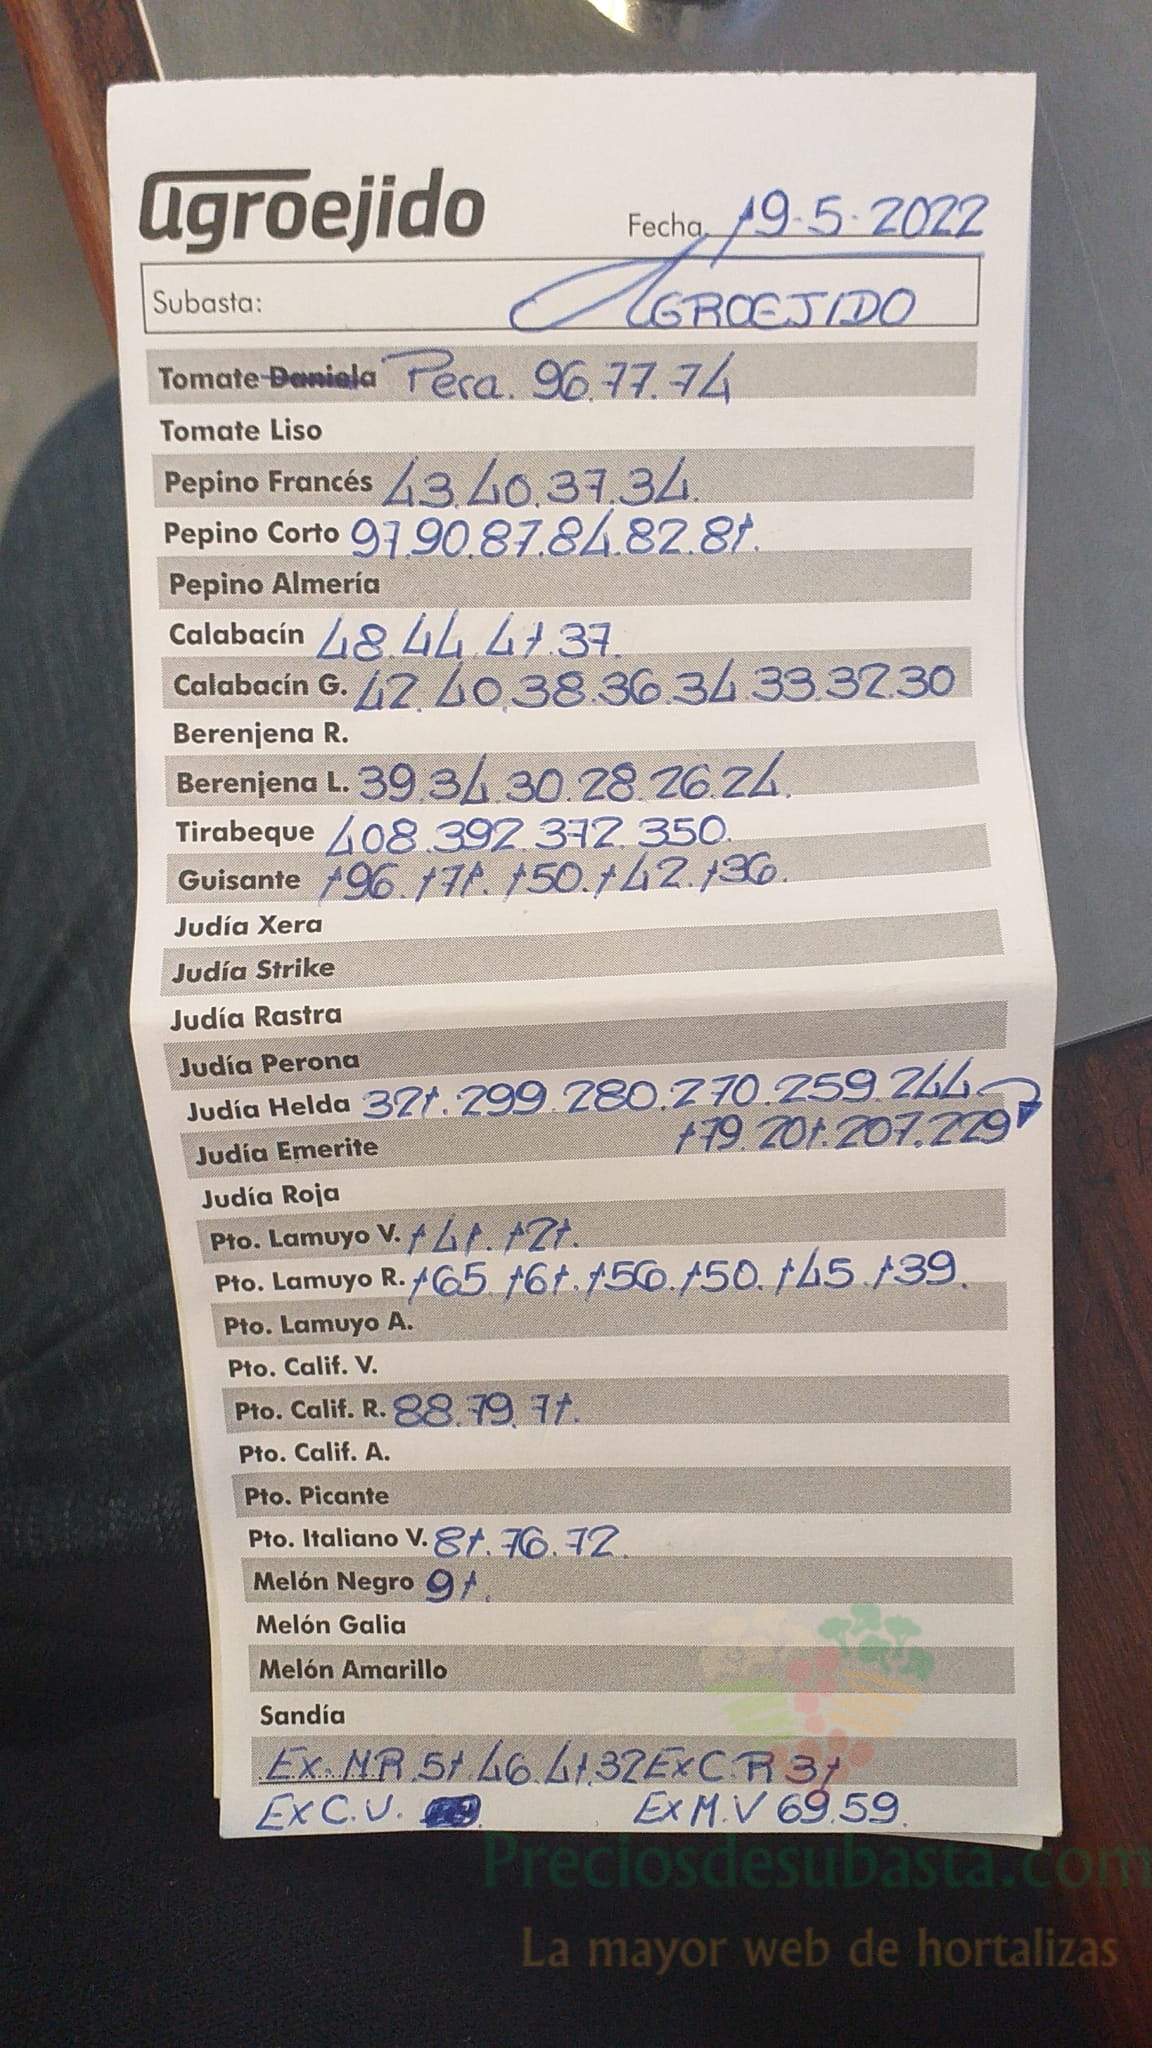 agroejido
Fecha 19-5-2022
Subasta: AGROEJIDO
Tomate Daniela Pera. 96.77.74
Tomate Liso
Pepino Francés 43.40.37.34.
Pepino Corto 97.90.87.84.82.81.
Pepino Almería
Calabacín 48.44.41.37.
Calabacín G. 42.40.38.36.34.33.32.30
Berenjena R.
Berenjena L. 39.34.30.28.26.24.
Tirabeque 408.392.372.350.
Guisante 196.171.150.142.136.
Judía Xera
Judía Strike
Judía Rastra
Judía Perona
Judía Helda 321.299.280.270.259.244
Judía Emerite 179.201.207.229
Judía Roja
Pto. Lamuyo V. 141.121.
Pto. Lamuyo R. 165.161.156.150.145.139.
Pto. Lamuyo A.
Pto. Calif. V.
Pto. Calif. R. 88.79.71.
Pto. Calif. A.
Pto. Picante
Pto. Italiano V. 81.76.72.
Melón Negro 91.
Melón Galia
Melón Amarillo
Sandía
Ex. M R 51.46.41.32 Ex C. R 31
Ex C. V. Ex M. V 69.59.
Preciosdesubasta.com
La mayor web de hortalizas